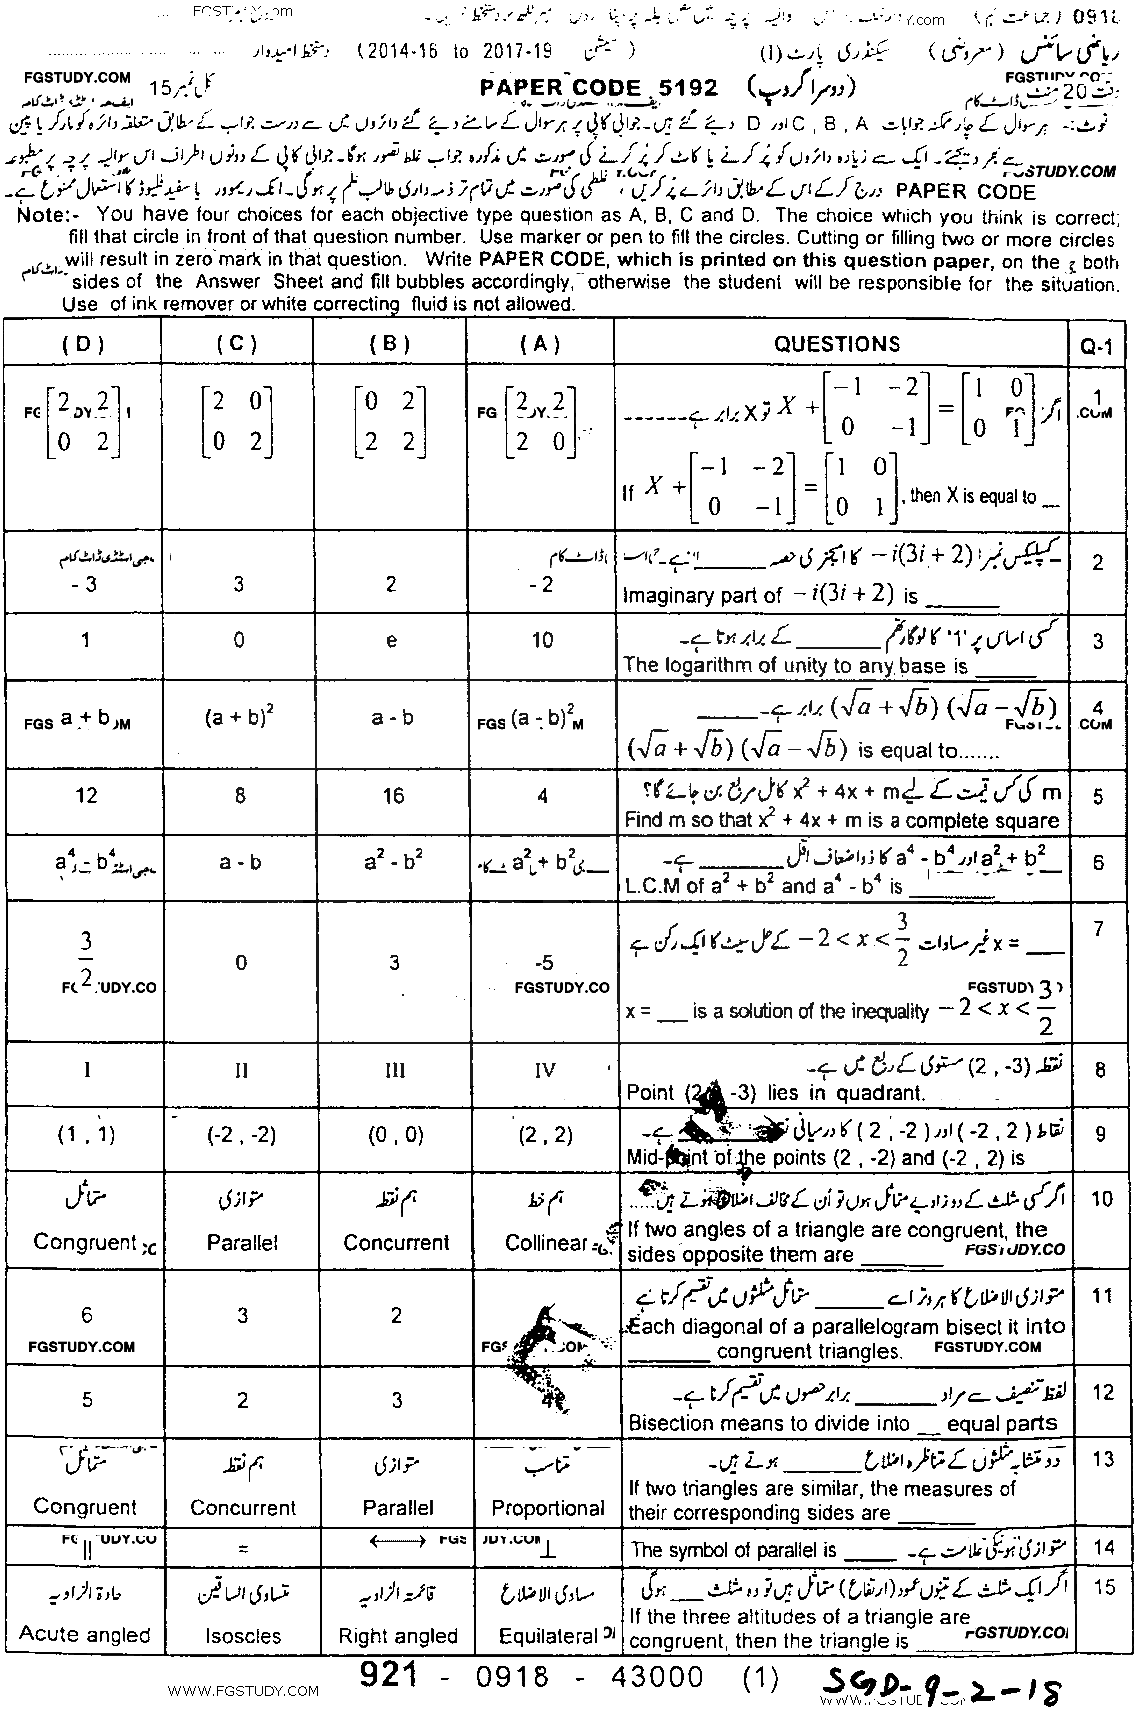 FGSTUDY.com
0918 (جماعت نہم)
ریاضی سائنس (معروضی) سیکنڈری پارٹ (I) (سیشن 2014-16 to 2017-19) دستخط امیدوار
FGSTUDY.COM
وقت 20 منٹ (دوسرا گروپ) PAPER CODE 5192 کل نمبر 15
نوٹ:- ہر سوال کے چار ممکنہ جوابات A ، B ، C اور D دیئے گئے ہیں۔ جوابی کاپی پر ہر سوال کے سامنے دیئے گئے دائروں میں سے درست جواب کے مطابق متعلقہ دائرہ کو مارکر یا پین
سے بھر دیجئے۔ ایک سے زیادہ دائروں کو پُر کرنے یا کاٹ کر پُر کرنے کی صورت میں مذکورہ جواب غلط تصور ہوگا۔ جوابی کاپی کے دونوں اطراف اس سوالیہ پرچہ پر مطبوعہ
PAPER CODE درج کر کے اس کے مطابق دائرے پُر کریں ، غلطی کی صورت میں تمام تر ذمہ داری طالب علم پر ہوگی۔ انک ریموور یا سفید فلیوڈ کا استعمال ممنوع ہے۔
Note:- You have four choices for each objective type question as A, B, C and D. The choice which you think is correct;
fill that circle in front of that question number. Use marker or pen to fill the circles. Cutting or filling two or more circles
will result in zero mark in that question. Write PAPER CODE, which is printed on this question paper, on the both
sides of the Answer Sheet and fill bubbles accordingly, otherwise the student will be responsible for the situation.
Use of ink remover or white correcting fluid is not allowed.
(D) (C) (B) (A) QUESTIONS Q-1
1 اگر X + [-1 -2; 0 -1] = [1 0; 0 1] تو X برابر ہے۔-------
[2 2; 0 2] [2 0; 0 2] [0 2; 2 2] [2 2; 2 0]
If X + [-1 -2; 0 -1] = [1 0; 0 1], then X is equal to __
2 کمپلیکس نمبر -i(3i + 2) کا امیجنری حصہ ______ ہے۔
- 3 3 2 - 2 Imaginary part of -i(3i + 2) is ______
3 کسی اساس پر '1' کا لوگارتھم ______ کے برابر ہوتا ہے۔
1 0 e 10 The logarithm of unity to any base is ______
4 (√a + √b) (√a - √b) برابر ہے۔_____
a + b (a + b)² a - b (a - b)² (√a + √b) (√a - √b) is equal to.......
5 m کی کس قیمت کے لیے x² + 4x + m کامل مربع بن جائے گا؟
12 8 16 4 Find m so that x² + 4x + m is a complete square
6 a² + b² اور a⁴ - b⁴ کا ذواضعاف اقل ______ ہے۔
a⁴ - b⁴ a - b a² - b² a² + b² L.C.M of a² + b² and a⁴ - b⁴ is ______
7 x = ___ غیر مساوات -2 < x < 3/2 کے حل سیٹ کا ایک رکن ہے
3/2 0 3 -5
FGSTUDY.COM
x = ___ is a solution of the inequality -2 < x < 3/2
8 نقطہ (2 , -3) مستوی کے ربع میں ہے۔
I II III IV Point (2, -3) lies in quadrant.
9 نقاط (-2 , 2) اور (2 , -2) کا درمیانی ______ ہے۔
(1 , 1) (-2 , -2) (0 , 0) (2 , 2) Mid-point of the points (2 , -2) and (-2 , 2) is
10 اگر کسی مثلث کے دو زاویے متماثل ہوں تو اُن کے مخالف اضلاع ہوتے ہیں.....
متماثل متوازی ہم نقطہ ہم خط
Congruent Parallel Concurrent Collinear If two angles of a triangle are congruent, the
sides opposite them are ______
11 متوازی الاضلاع کا ہر وتر اسے ______ متماثل مثلثوں میں تقسیم کرتا ہے
6 3 2 Each diagonal of a parallelogram bisect it into
FGSTUDY.COM ______ congruent triangles. FGSTUDY.COM
12 لفظ تنصیف سے مراد ______ برابر حصوں میں تقسیم کرنا ہے۔
5 2 3 4 Bisection means to divide into __ equal parts
13 دو متشابہ مثلثوں کے متناظرہ اضلاع ______ ہوتے ہیں۔
متماثل ہم نقطہ متوازی متناسب
Congruent Concurrent Parallel Proportional If two triangles are similar, the measures of
their corresponding sides are ______
|| = ⟷ ⊥ The symbol of parallel is _____ متوازی ہونیکی علامت ہے۔ 14
15 اگر ایک مثلث کے تینوں عمود (ارتفاع) متماثل ہیں تو وہ مثلث ___ ہوگی
حادۃ الزاویہ متساوی الساقین قائمۃ الزاویہ مساوی الاضلاع
Acute angled Isoscles Right angled Equilateral If the three altitudes of a triangle are
congruent, then the triangle is ______
921 - 0918 - 43000 (1) SGD-9-2-18
WWW.FGSTUDY.COM